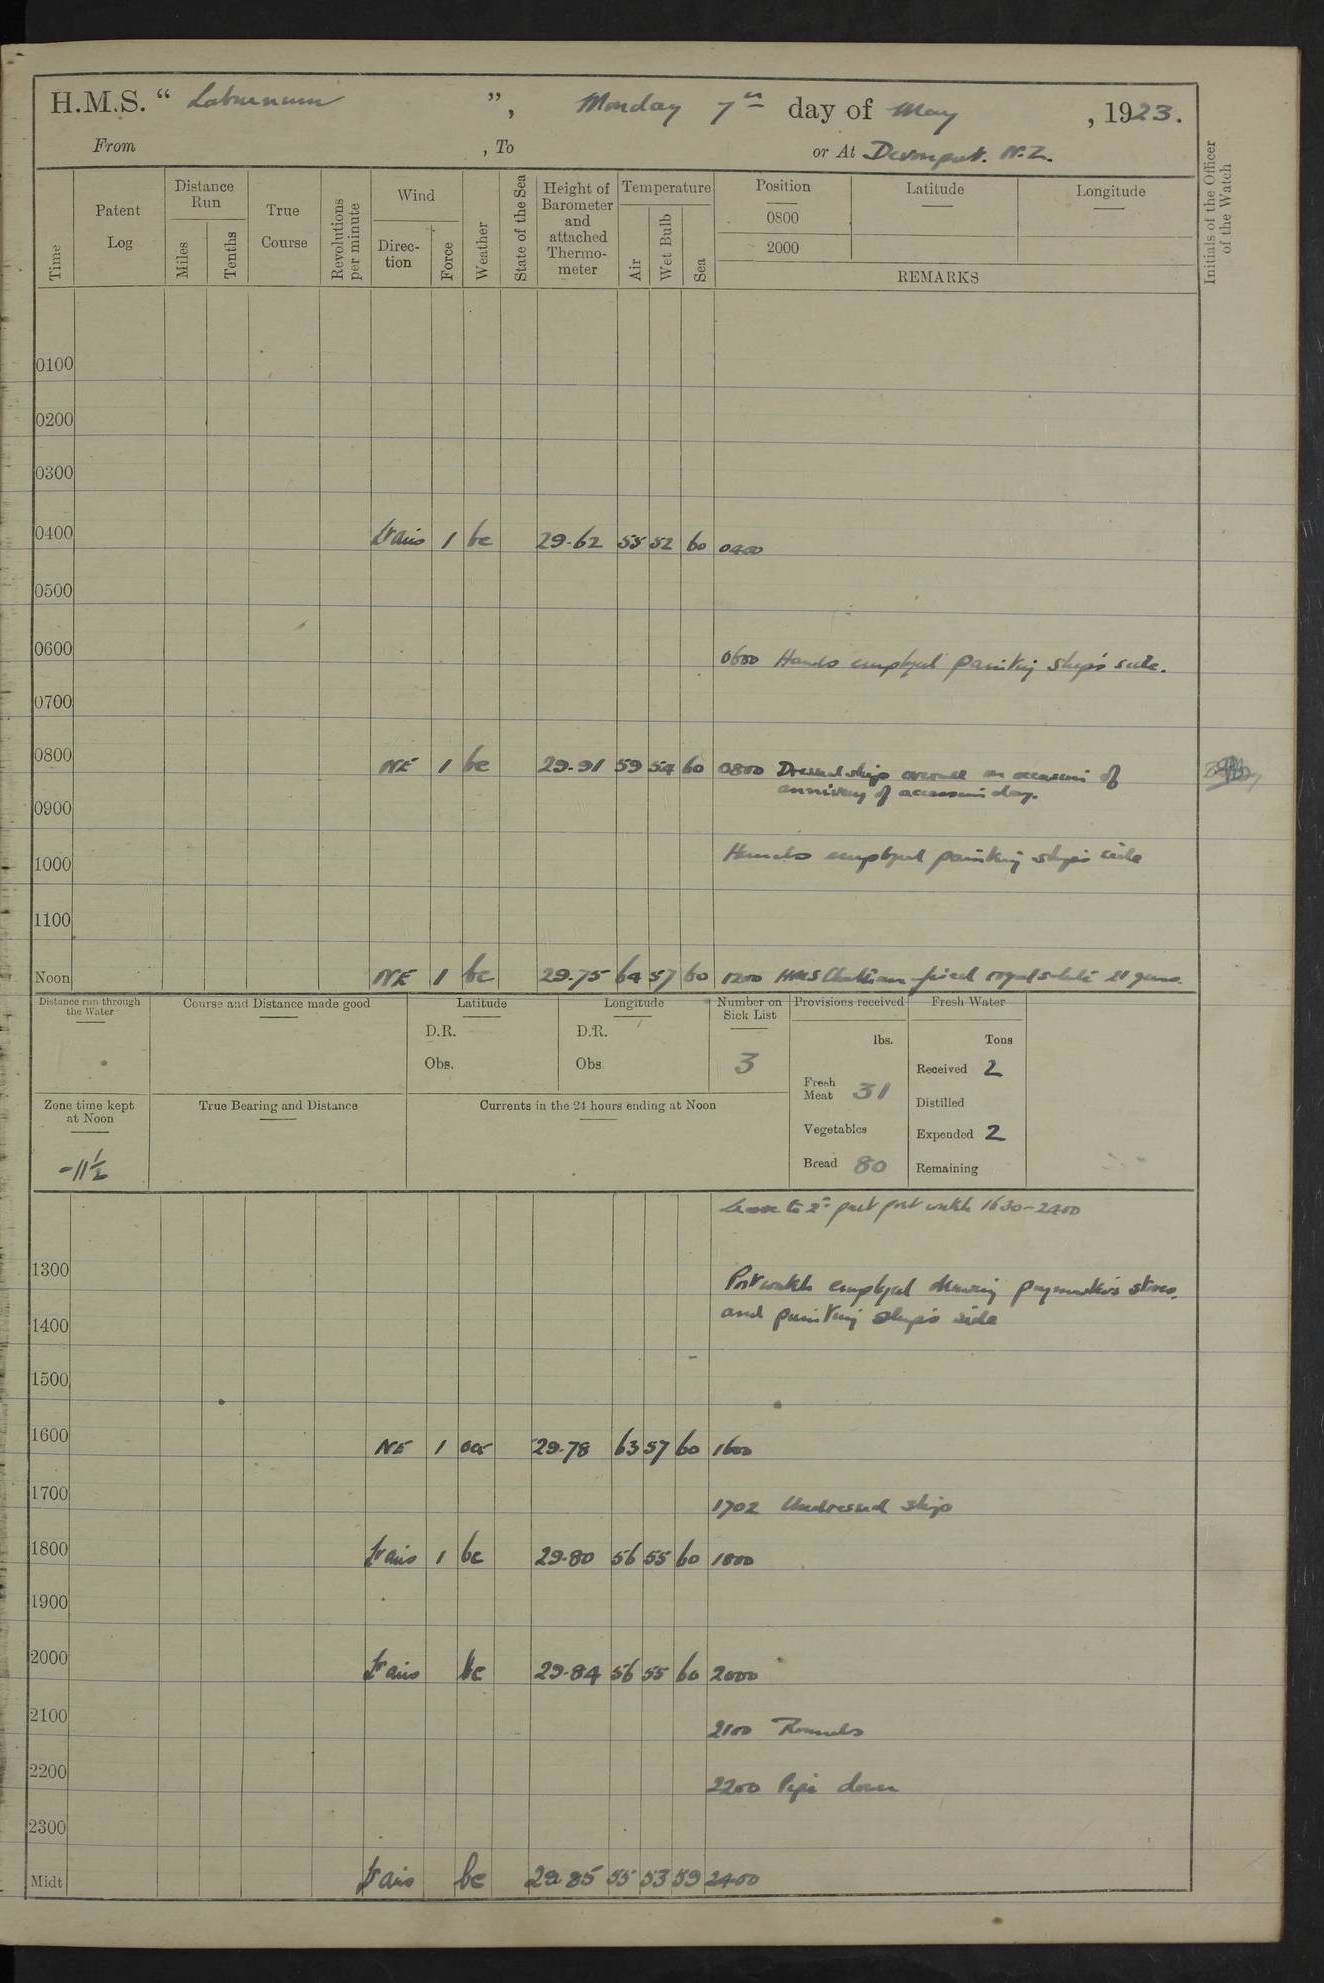 H.M.S. “ Laburnum ”, Monday 7th day of May , 1923.
From , To or At Devonport. N.Z.
Time
Patent Log
Distance Run
Miles
Tenths
True Course
Revolutions per minute
Wind
Direction
Force
Weather
State of the Sea
Height of Barometer and attached Thermometer
Temperature
Air
Wet Bulb
Sea
Position
0800
2000
Latitude
Longitude
REMARKS
Initials of the Officer of the Watch
0100
0200
0300
0400 1 bc 29.62 55 52 60 0400
0500
0600 0600 Hands employed painting ship's side.
0700
0800 NE 1 bc 29.91 59 54 60 0800 Dressed ship overall on occasion of
anniversary of accession day.
0900
1000 Hands employed painting ship's side
1100
Noon NE 1 bc 29.75 64 57 60 1200 HMS Chatham fired royal salute 21 guns.
Distance run through the Water
Course and Distance made good
Latitude
D.R.
Obs.
Longitude
D.R.
Obs.
Number on Sick List
3
Provisions received
lbs.
Fresh Meat 31
Vegetables
Bread 80
Fresh Water
Tons
Received 2
Distilled
Expended 2
Remaining
Zone time kept at Noon
-11½
True Bearing and Distance
Currents in the 24 hours ending at Noon
Leave to 2nd part port watch 1630-2400
1300 Port watch employed drawing paymaster's stores,
1400 and painting ship's side
1500
1600 NE 1 29.78 63 57 60 1600
1700 1702 Undressed ship
1800 1 bc 29.80 56 55 60 1800
1900
2000 bc 29.84 56 55 60 2000
2100 2100 Rounds
2200 2200 Pipe down
2300
Midt bc 29.85 55 53 59 2400